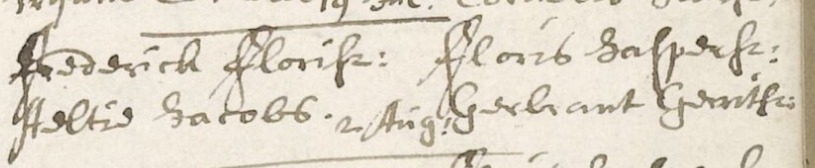 Frederick Florisz: Floris Jaspersz:
Aeltie Jacobs. 2. Aug: Gerbrant Gerritsz: